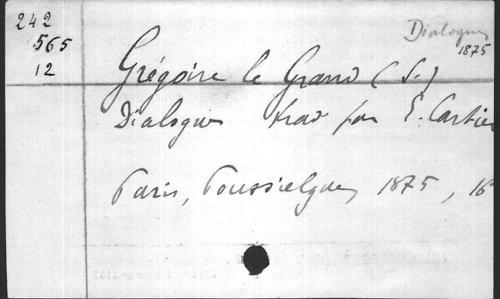 242
565
12
Dialogues
1875
Grégoire le Grand (S.)
Dialogues trad par E. Cartier
Paris, Poussielgue, 1875, 16